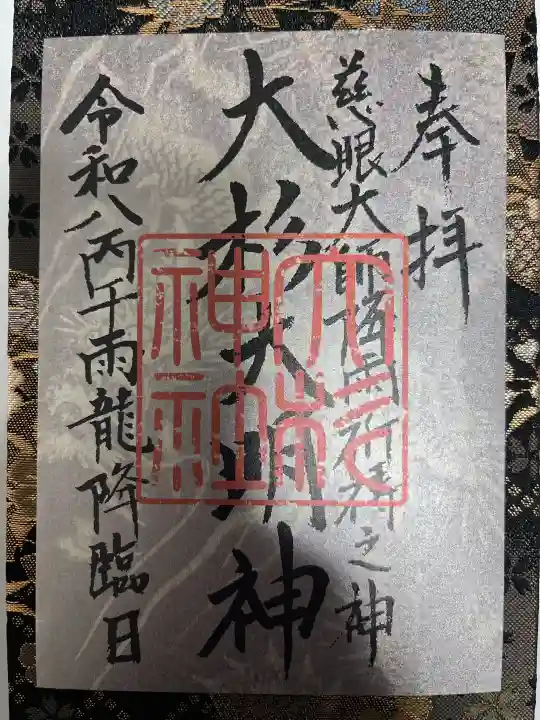 奉拝
慈眼大師雨祈祷之神
大杉大明神
令和八丙午雨龍降臨日
神社